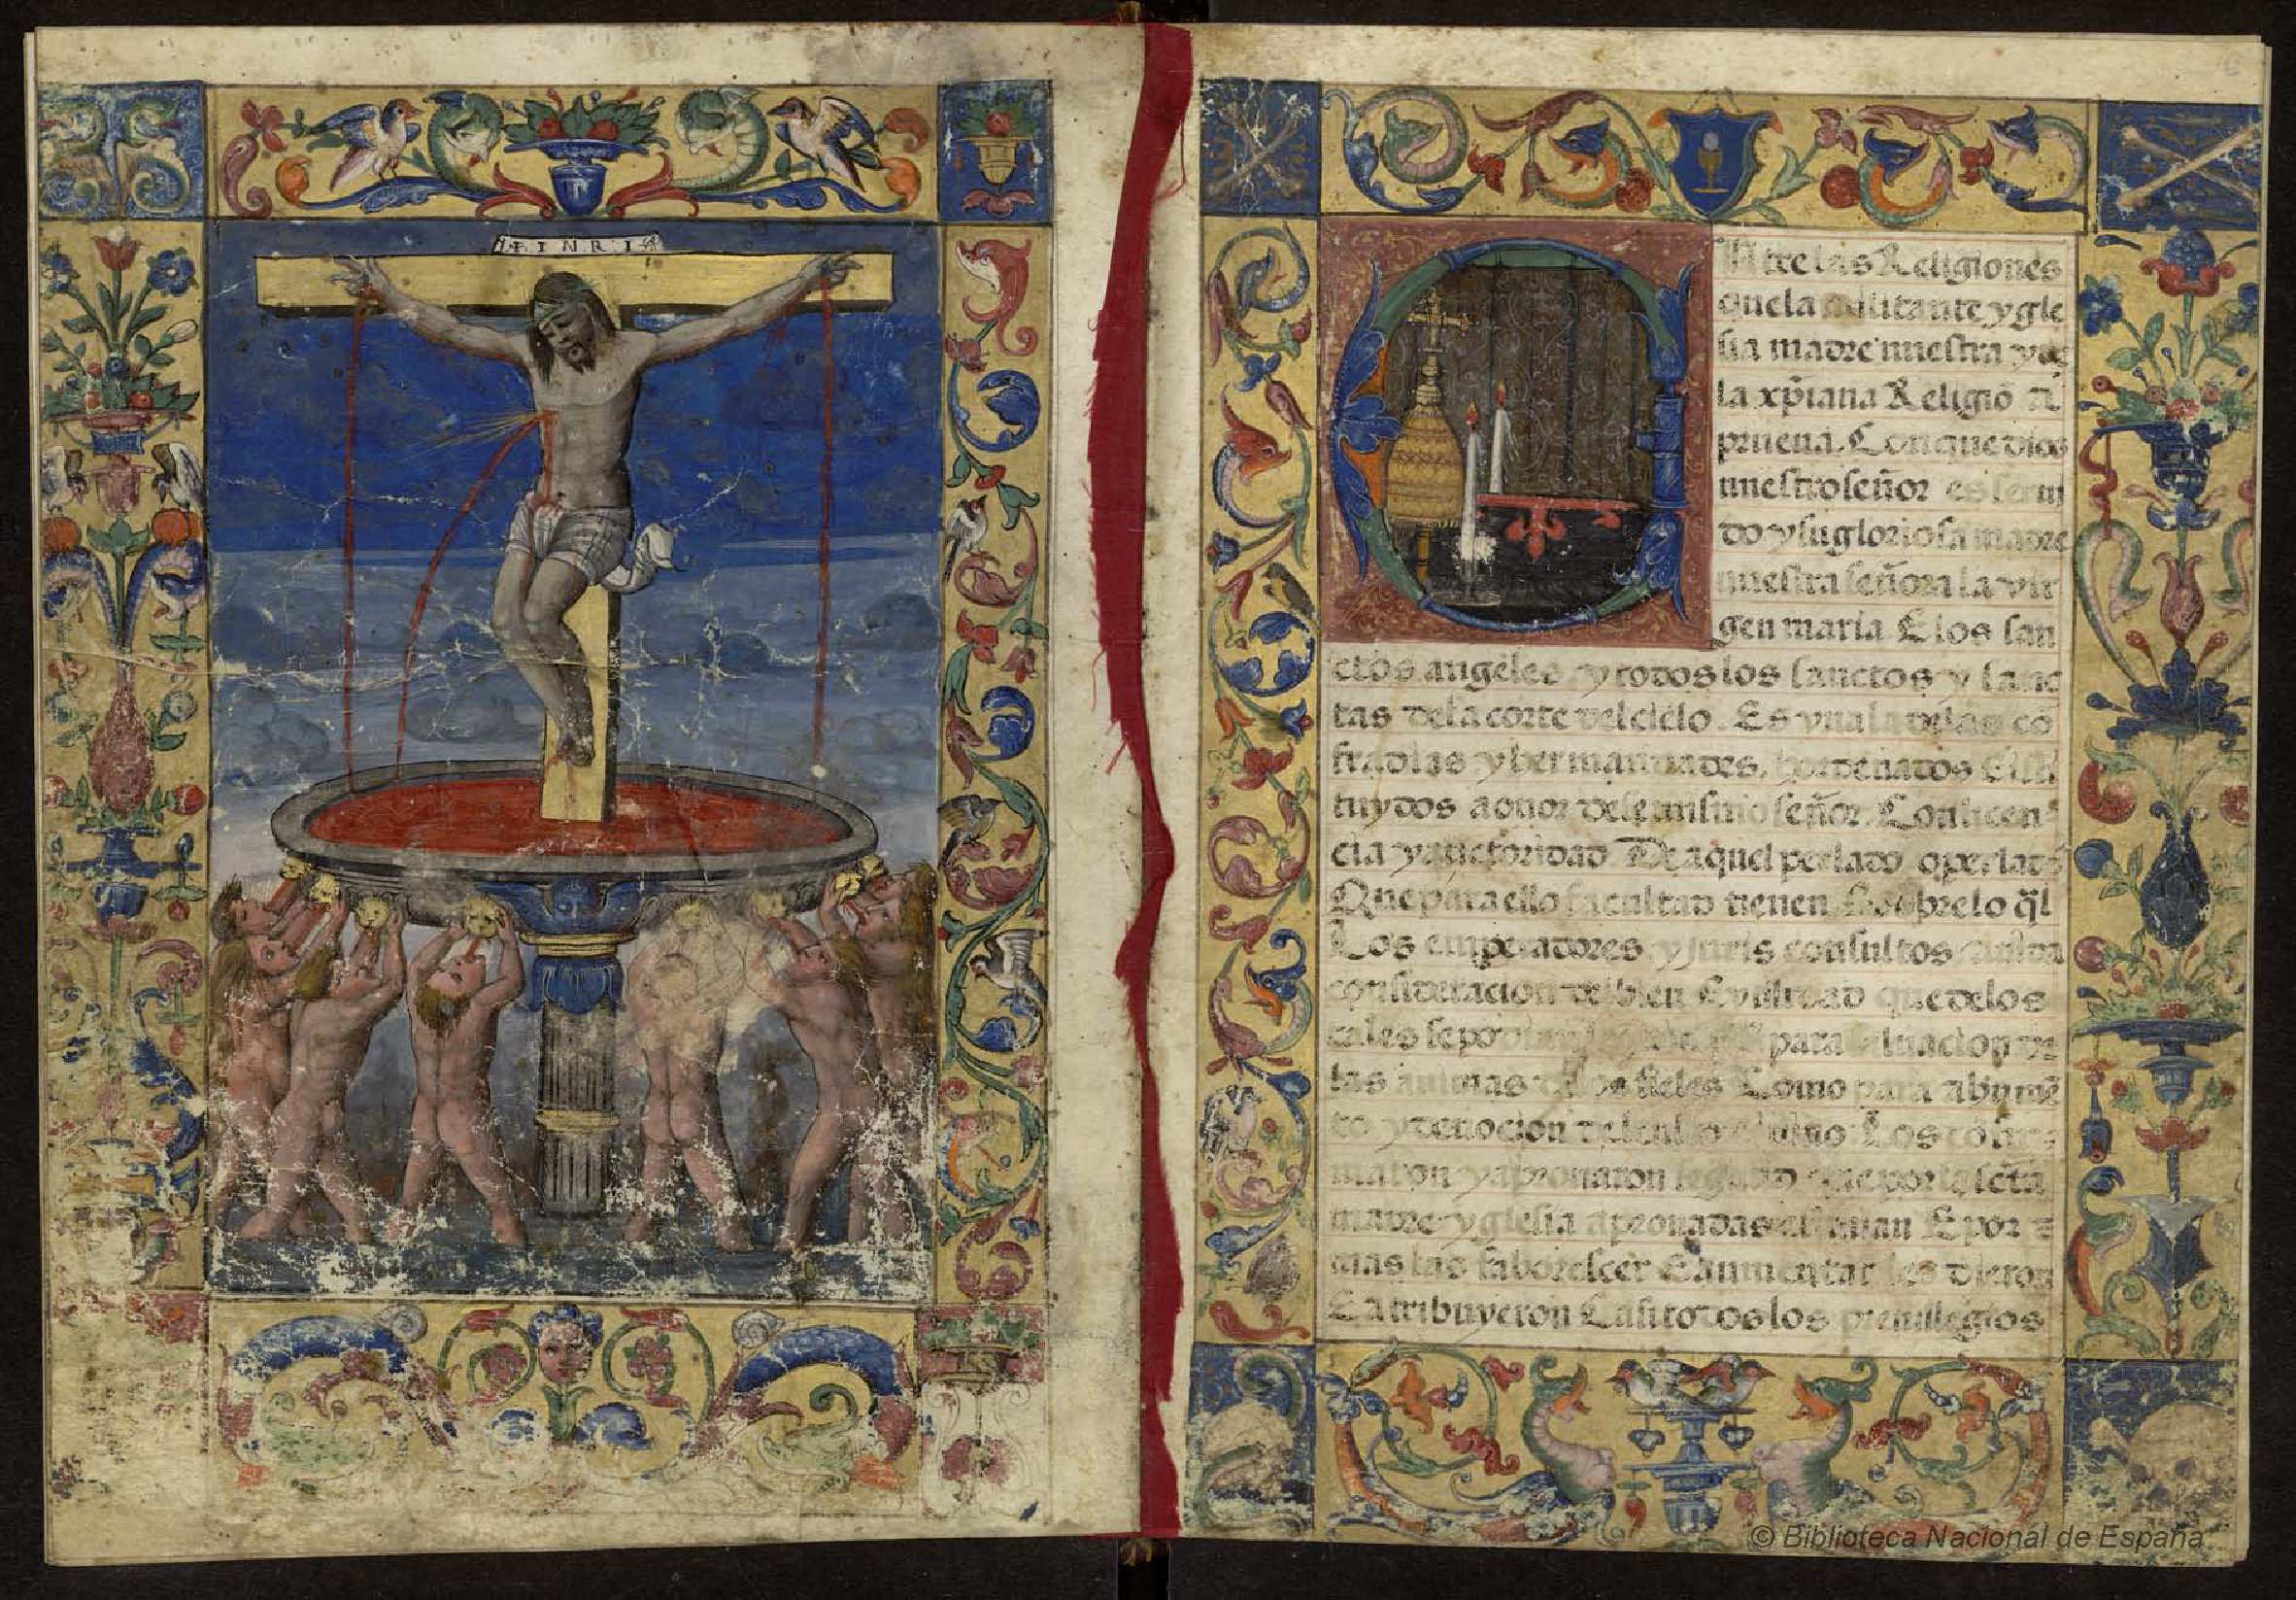 INRI
Ntre las Religiones
que la militante ygle
sia madre nuestra y de
la xp̄iana Religiō a
prueua. Con que dios
nuestro señor es serui
do y su gloriosa madre
nuestra señora la vir
gen maria E los san
ctos angeles y todos los sanctos y sanc
tas dela corte del cielo. Es vna la delas co
fradias y hermandades, hordenados E insti
tuydos a onor dese mismo señor. Con licen
cia y auctoridad De aquel perlado o perlados
Que para ello facultad tienen sobre lo q̄l
Los emperadores y juris consultos
consideracion del bien E vtilidad que delos
tales se para saluacion de
las animas delos fieles Como para abumē
to y deuocion del culto diuino Los confir
maron y aprouaron que por la sctā
madre yglesia aprouadas Epor
mas las faborescer E aumentar les dieron
E atribuyeron Casi todos los preuillegios
© Biblioteca Nacional de España